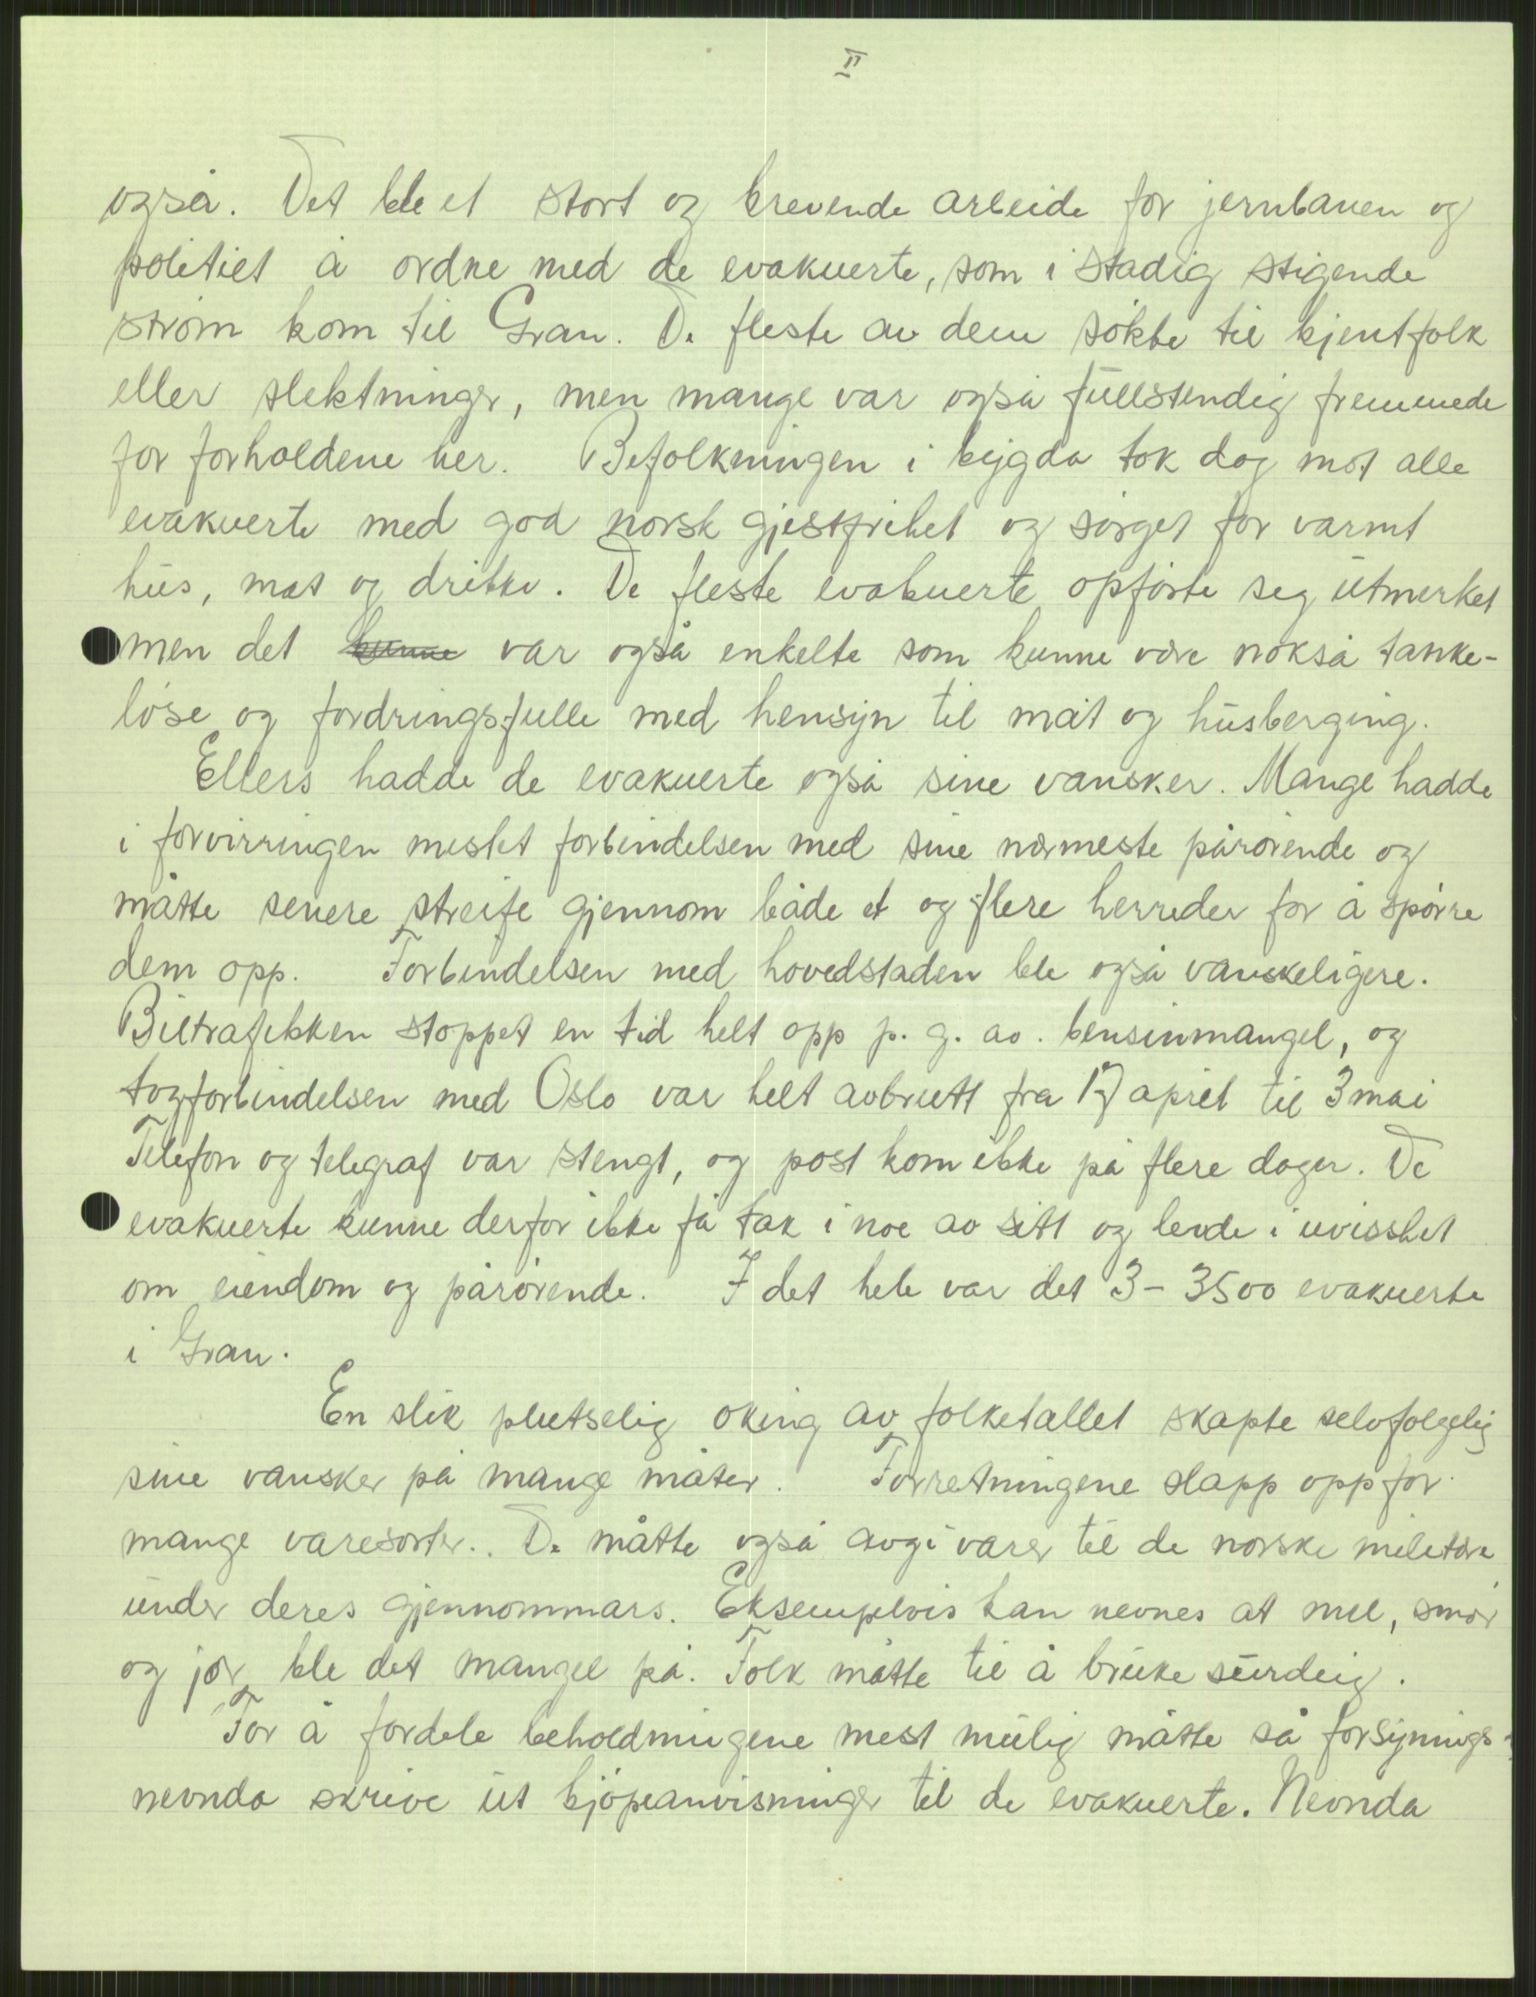 II
også. Det ble et stort og krevende arbeide for jernbanen og
politiet å ordne med de evakuerte, som i stadig stigende
strøm kom til Gran. De fleste av dem søkte til kjentfolk
eller slektninger, men mange var også fullstendig fremmede
for forholdene her. Befolkningen i bygda tok dog mot alle
evakuerte med god norsk gjestfrihet og sørget for varmt
hus, mat og drikke. De fleste evakuerte opførte seg utmerket
men det kunne var også enkelte som kunne være nokså tanke-
løse og fordringsfulle med hensyn til mat og husberging.
Ellers hadde de evakuerte også sine vansker. Mange hadde
i forvirringen mistet forbindelsen med sine nærmeste pårørende og
måtte senere streife gjennom både et og flere herreder for å spørre
dem opp. Forbindelsen med hovedstaden ble også vanskeligere.
Biltrafikken stoppet en tid helt opp p. g. av. bensinmangel, og
togforbindelsen med Oslo var helt avbrutt fra april til 3 mai
Telefon og telegraf var stengt, og post kom ikke på flere dager. De
evakuerte kunne derfor ikke få tak i noe av sitt og levde i uvisshet
om eiendom og pårørende. I det hele var det 3-3500 evakuerte
i Gran.
En slik plutselig øking av folketallet skapte selvfølgelig
sine vansker på mange måter. Forretningene slapp opp for
mange varesorter. De måtte også avgi varer til de norske militære
under deres gjennommars. Eksempelvis kan nevnes at mel, smør
og jær ble det mangel på. Folk måtte til å bruke surdeig.
For å fordele beholdningene mest mulig måtte så forsynings-
nevnda skrive ut kjøpeanvisninger til de evakuerte. Nevnda